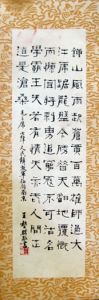 鍾山風雨起蒼黃百萬雄師過大
江虎踞龍盤今勝昔天翻地覆慨
而慷宜將剩勇追窮寇不可沽名
學霸王天若有情天亦老人間正
道是滄桑
毛主席七律人民解放軍佔領南京